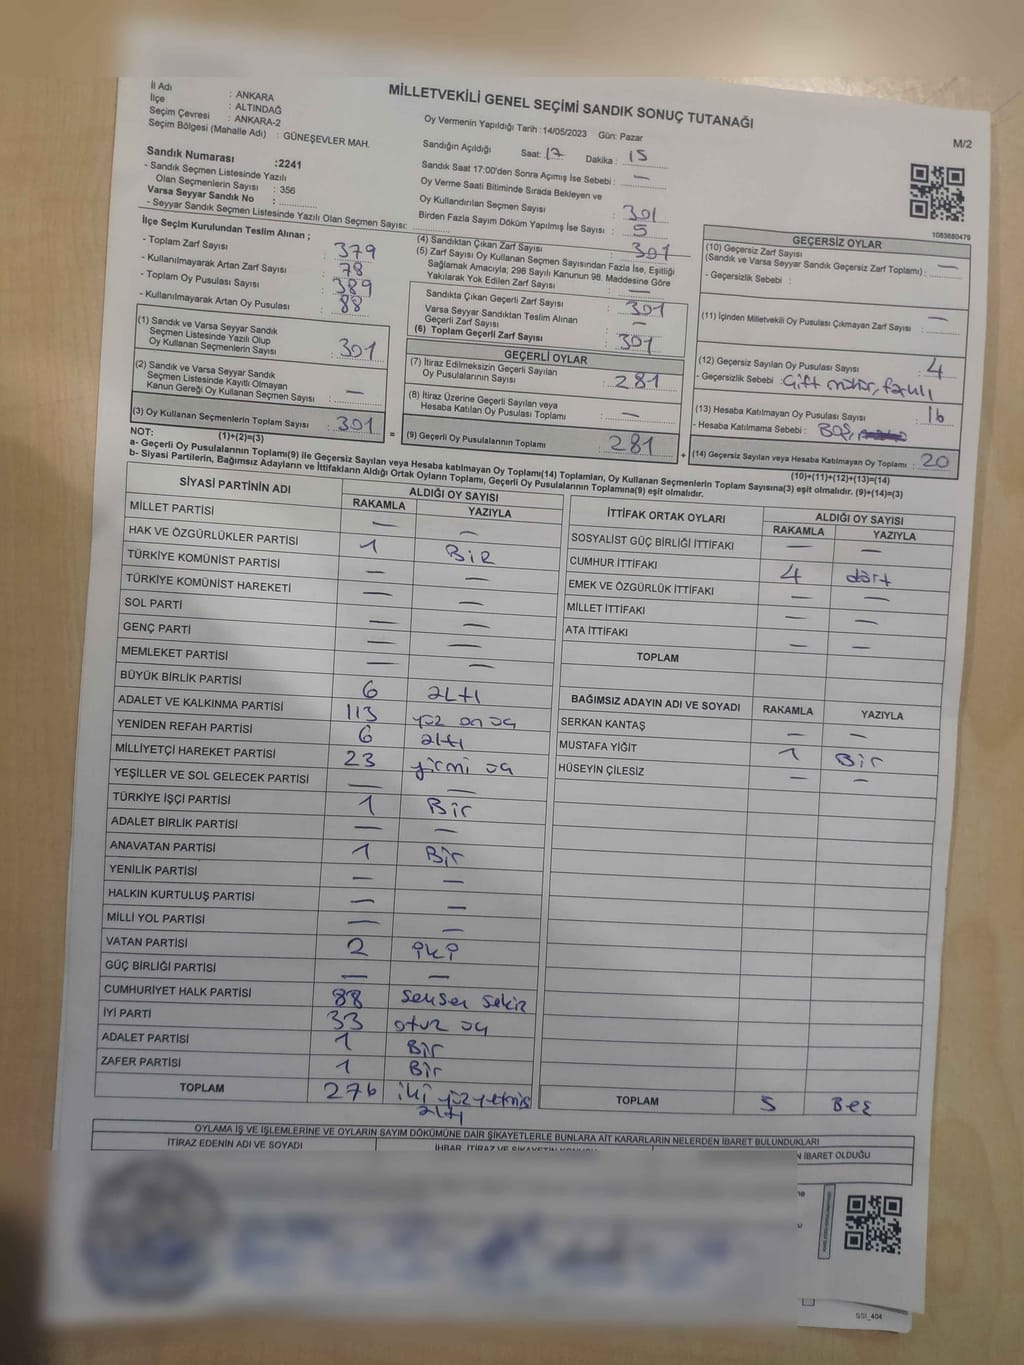 MİLLETVEKİLİ GENEL SEÇİMİ SANDIK SONUÇ TUTANAĞI
M/2
İl Adı : ANKARA
İlçe : ALTINDAĞ
Seçim Çevresi : ANKARA-2
Seçim Bölgesi (Mahalle Adı) : GÜNEŞEVLER MAH.
Sandık Numarası :2241
- Sandık Seçmen Listesinde Yazılı
Olan Seçmenlerin Sayısı : 356
Varsa Seyyar Sandık No :
- Seyyar Sandık Seçmen Listesinde Yazılı Olan Seçmen Sayısı:
Oy Vermenin Yapıldığı Tarih :14/05/2023 Gün: Pazar
Sandığın Açıldığı Saat: 17 Dakika : 15
Sandık Saat 17:00'den Sonra Açımış İse Sebebi : —
Oy Verme Saati Bitiminde Sırada Bekleyen ve
Oy Kullandırılan Seçmen Sayısı : 301
Birden Fazla Sayım Döküm Yapılmış İse Sayısı : 5
1083680479
İlçe Seçim Kurulundan Teslim Alınan ;
- Toplam Zarf Sayısı : 379
- Kullanılmayarak Artan Zarf Sayısı : 78
- Toplam Oy Pusulası Sayısı : 389
- Kullanılmayarak Artan Oy Pusulası : 88
(1) Sandık ve Varsa Seyyar Sandık
Seçmen Listesinde Yazılı Olup
Oy Kullanan Seçmenlerin Sayısı : 301
(2) Sandık ve Varsa Seyyar Sandık
Seçmen Listesinde Kayıtlı Olmayan
Kanun Gereği Oy Kullanan Seçmen Sayısı : —
(3) Oy Kullanan Seçmenlerin Toplam Sayısı : 301
(4) Sandıktan Çıkan Zarf Sayısı : 301
(5) Zarf Sayısı Oy Kullanan Seçmen Sayısından Fazla İse, Eşitliği
Sağlamak Amacıyla; 298 Sayılı Kanunun 98. Maddesine Göre
Yakılarak Yok Edilen Zarf Sayısı : —
Sandıkta Çıkan Geçerli Zarf Sayısı : 301
Varsa Seyyar Sandıktan Teslim Alınan
Geçerli Zarf Sayısı : —
(6) Toplam Geçerli Zarf Sayısı : 301
GEÇERLİ OYLAR
(7) İtiraz Edilmeksizin Geçerli Sayılan
Oy Pusulalarının Sayısı : 281
(8) İtiraz Üzerine Geçerli Sayılan veya
Hesaba Katılan Oy Pusulası Toplamı : —
= (9) Geçerli Oy Pusulalarının Toplamı : 281 +
GEÇERSİZ OYLAR
(10) Geçersiz Zarf Sayısı
(Sandık ve Varsa Seyyar Sandık Geçersiz Zarf Toplamı) : —
- Geçersizlik Sebebi :
(11) İçinden Milletvekili Oy Pusulası Çıkmayan Zarf Sayısı : —
(12) Geçersiz Sayılan Oy Pusulası Sayısı : 4
- Geçersizlik Sebebi : Çift mühür, farklı
(13) Hesaba Katılmayan Oy Pusulası Sayısı : 16
- Hesaba Katılmama Sebebi : Boş,
(14) Geçersiz Sayılan veya Hesaba Katılmayan Oy Toplamı : 20
NOT: (1)+(2)=(3)
(10)+(11)+(12)+(13)=(14)
a- Geçerli Oy Pusulalarının Toplamı(9) ile Geçersiz Sayılan veya Hesaba katılmayan Oy Toplamı(14) Toplamları, Oy Kullanan Seçmenlerin Toplam Sayısına(3) eşit olmalıdır. (9)+(14)=(3)
b- Siyasi Partilerin, Bağımsız Adayların ve İttifakların Aldığı Ortak Oyların Toplamı, Geçerli Oy Pusulalarının Toplamına(9) eşit olmalıdır.
SİYASİ PARTİNİN ADI ALDIĞI OY SAYISI
RAKAMLA YAZIYLA
MİLLET PARTİSİ — —
HAK VE ÖZGÜRLÜKLER PARTİSİ 1 BİR
TÜRKİYE KOMÜNİST PARTİSİ — —
TÜRKİYE KOMÜNİST HAREKETİ — —
SOL PARTİ — —
GENÇ PARTİ — —
MEMLEKET PARTİSİ — —
BÜYÜK BİRLİK PARTİSİ 6 altı
ADALET VE KALKINMA PARTİSİ 113 yüz on üç
YENİDEN REFAH PARTİSİ 6 altı
MİLLİYETÇİ HAREKET PARTİSİ 23 yirmi üç
YEŞİLLER VE SOL GELECEK PARTİSİ — —
TÜRKİYE İŞÇİ PARTİSİ 1 Bir
ADALET BİRLİK PARTİSİ — —
ANAVATAN PARTİSİ 1 Bir
YENİLİK PARTİSİ — —
HALKIN KURTULUŞ PARTİSİ — —
MİLLİ YOL PARTİSİ — —
VATAN PARTİSİ 2 iki
GÜÇ BİRLİĞİ PARTİSİ — —
CUMHURİYET HALK PARTİSİ 88 seksen sekiz
İYİ PARTİ 33 otuz üç
ADALET PARTİSİ 1 Bir
ZAFER PARTİSİ 1 Bir
TOPLAM 276 iki yüz yetmiş
altı
İTTİFAK ORTAK OYLARI ALDIĞI OY SAYISI
RAKAMLA YAZIYLA
SOSYALİST GÜÇ BİRLİĞİ İTTİFAKI — —
CUMHUR İTTİFAKI 4 dört
EMEK VE ÖZGÜRLÜK İTTİFAKI — —
MİLLET İTTİFAKI — —
ATA İTTİFAKI — —
TOPLAM
BAĞIMSIZ ADAYIN ADI VE SOYADI RAKAMLA YAZIYLA
SERKAN KANTAŞ — —
MUSTAFA YİĞİT 1 Bir
HÜSEYİN ÇİLESİZ — —
TOPLAM 5 Beş
OYLAMA İŞ VE İŞLEMLERİNE VE OYLARIN SAYIM DÖKÜMÜNE DAİR ŞİKAYETLERLE BUNLARA AİT KARARLARIN NELERDEN İBARET BULUNDUKLARI
İTİRAZ EDENİN ADI VE SOYADI
İHBAR, İTİRAZ VE ŞİKAYETİN KONUSU
N İBARET OLDUĞU
SSI_404